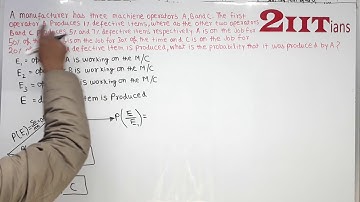 A manufacturer has three machiene operators A, B and C. The first
operator A Produces 1% defective items, where as the other two operators
B and C Produces 5% and 7% defective items respectively A is on the Job for
50% of is on the Job for 30% of the time and C is on the Job for
20% defective item is produced, what is the probability that it was produced by A?
2IITians
E1 = A is working on the M/C
E2 = B is working on the M/C
E3 = is working on the M/C
E = item is Produced
P(E1) =
P(E/E1) =
C